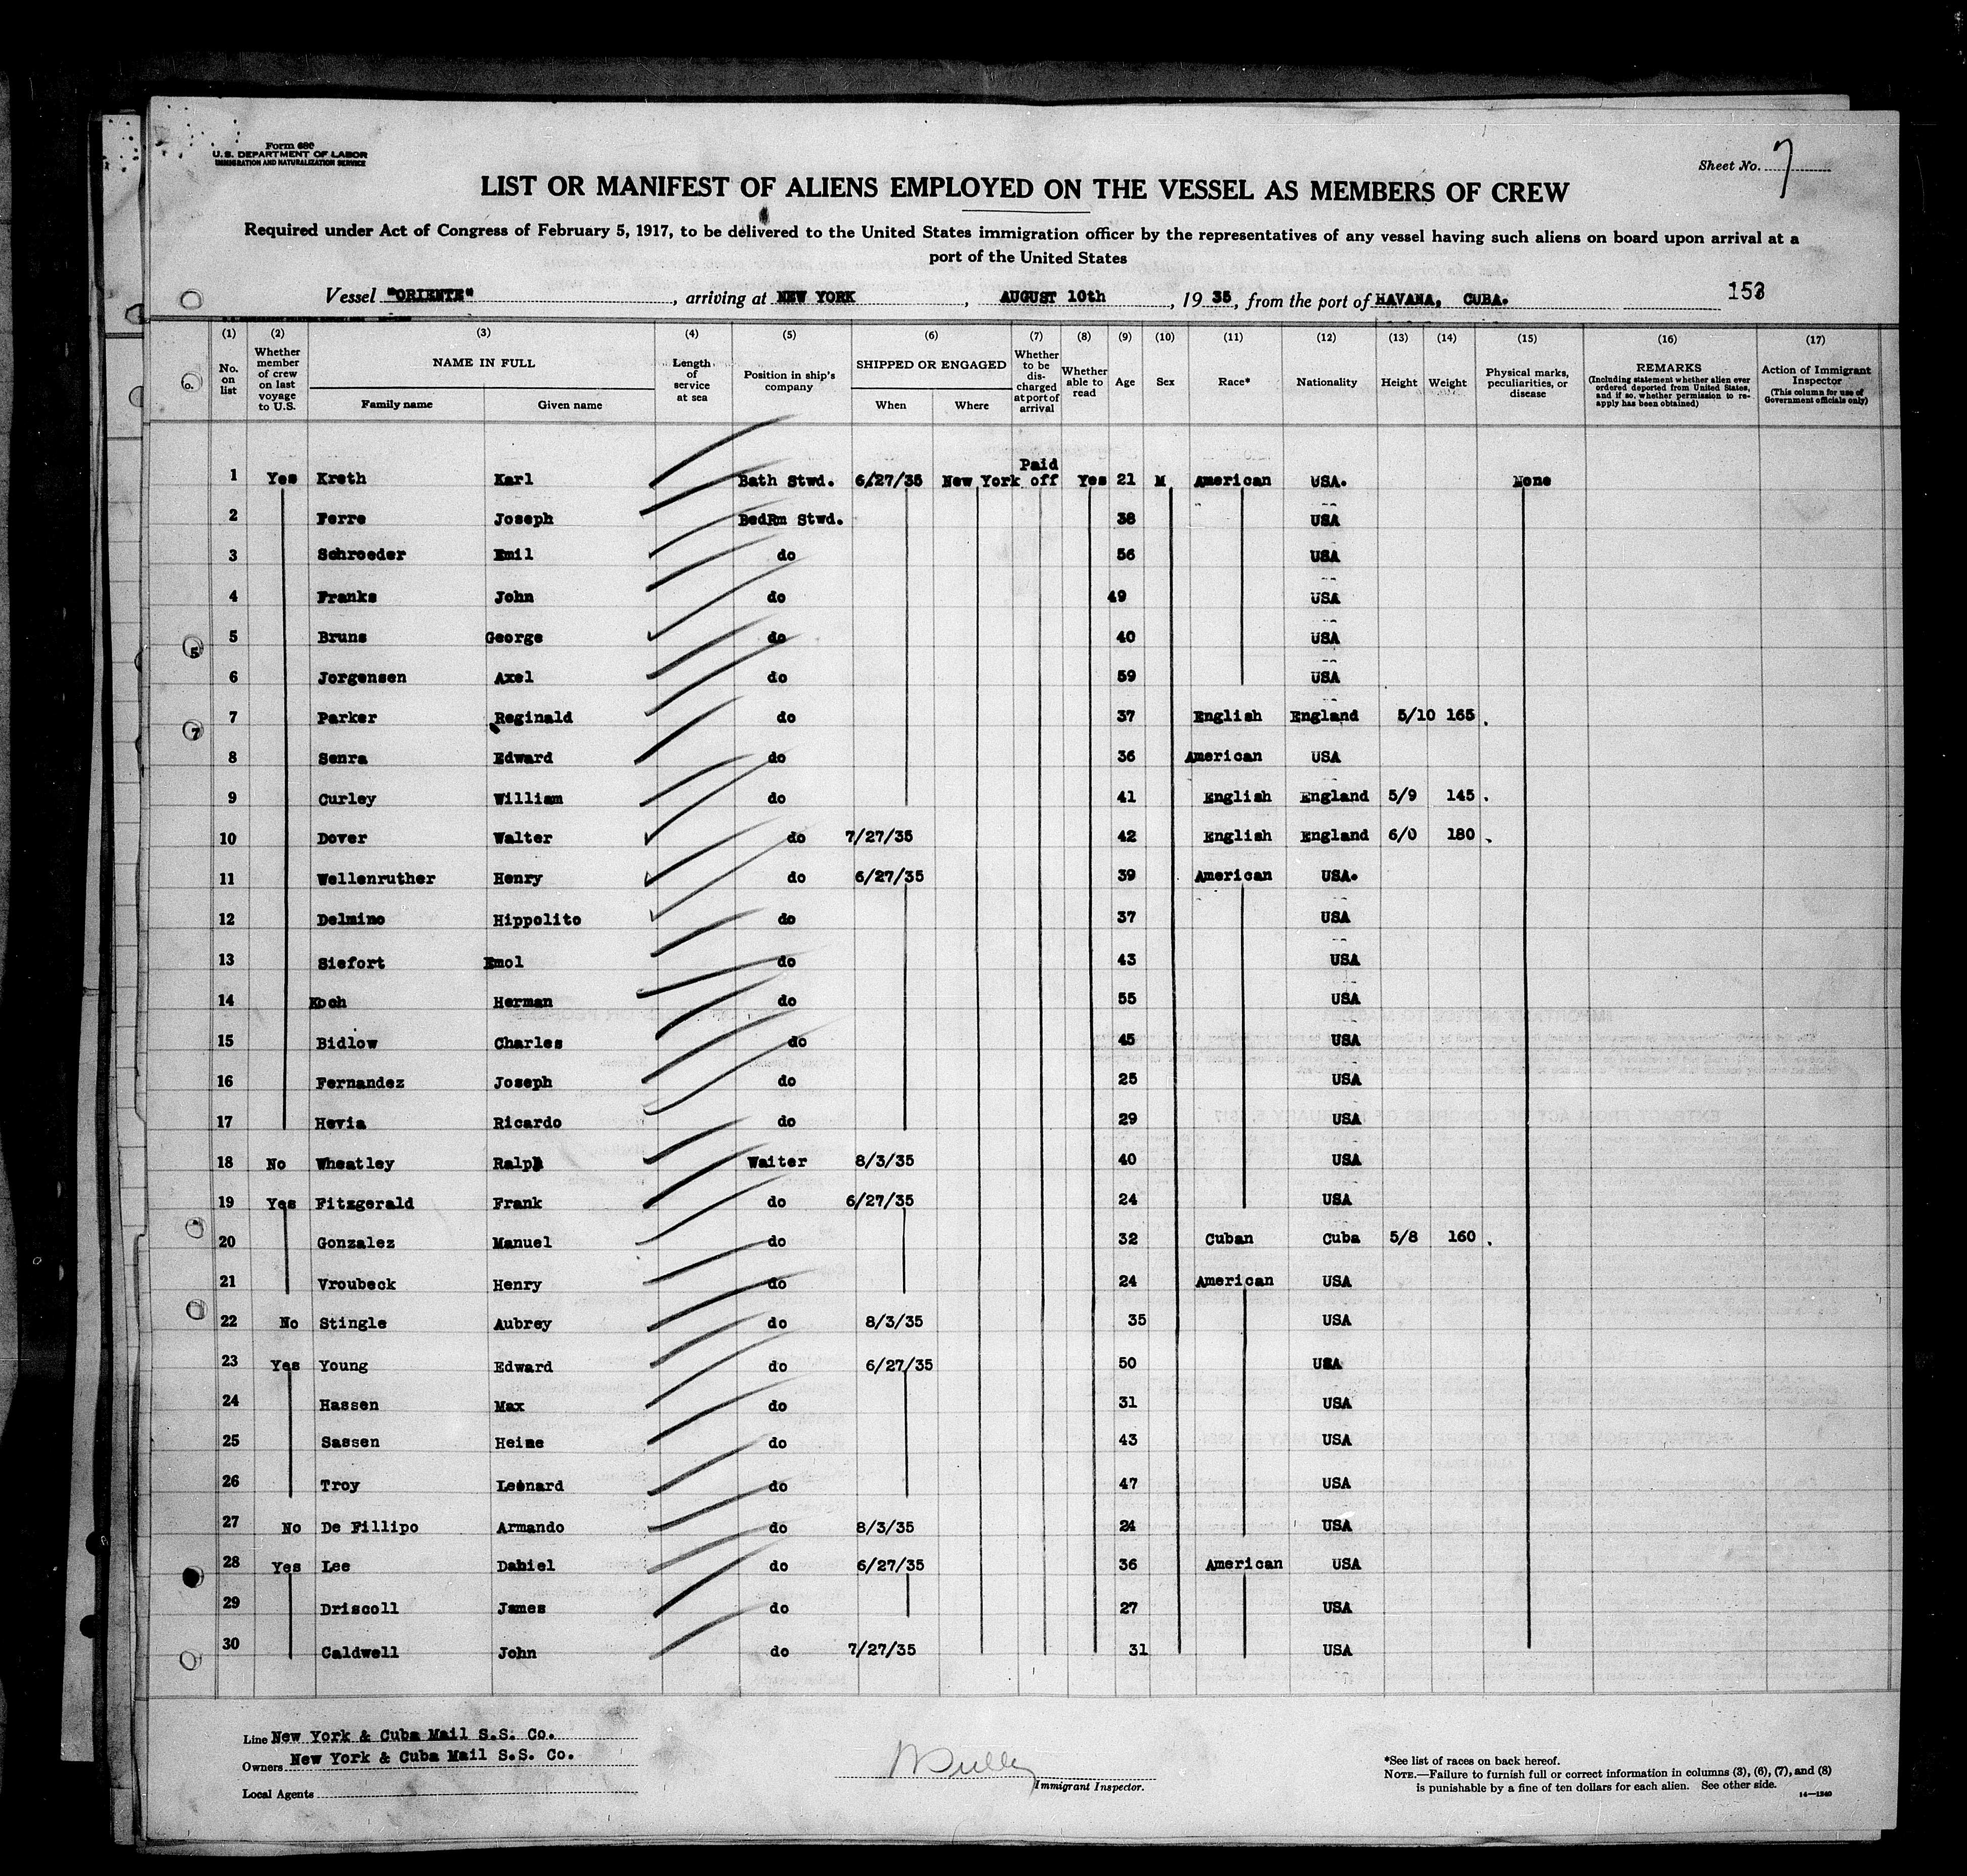 Form 680
U.S. DEPARTMENT OF LABOR
IMMIGRATION AND NATURALIZATION SERVICE
Sheet No. 7
LIST OR MANIFEST OF ALIENS EMPLOYED ON THE VESSEL AS MEMBERS OF CREW
Required under Act of Congress of February 5, 1917, to be delivered to the United States immigration officer by the representatives of any vessel having such aliens on board upon arrival at a
port of the United States
Vessel "ORIENTE", arriving at NEW YORK, AUGUST 10th, 1935, from the port of HAVANA, CUBA.
153
(1) (2) (3) (4) (5) (6) (7) (8) (9) (10) (11) (12) (13) (14) (15) (16) (17)
No. on list
Whether member of crew on last voyage to U.S.
NAME IN FULL
Family name Given name
Length of service at sea
Position in ship's company
SHIPPED OR ENGAGED
When Where
Whether to be discharged at port of arrival
Whether able to read
Age
Sex
Race*
Nationality
Height
Weight
Physical marks, peculiarities, or disease
REMARKS
(Including statement whether alien ever ordered deported from United States, and if so, whether permission to re-apply has been obtained)
Action of Immigrant Inspector
(This column for use of Government officials only)
1 Yes Kreth Karl Bath Stwd. 6/27/35 New York Paid off Yes 21 M American USA. None
2 Ferre Joseph BedRm Stwd. 38 USA
3 Schroeder Emil do 56 USA
4 Franks John do 49 USA
5 Bruns George do 40 USA
6 Jorgensen Axel do 59 USA
7 Parker Reginald do 37 English England 5/10 165.
8 Senra Edward do 36 American USA
9 Curley William do 41 English England 5/9 145.
10 Dover Walter do 7/27/35 42 English England 6/0 180.
11 Wellenruther Henry do 6/27/35 39 American USA.
12 Delmino Hippolito do 37 USA
13 Siefort Emol do 43 USA
14 Koch Herman do 55 USA
15 Bidlow Charles do 45 USA
16 Fernandez Joseph do 25 USA
17 Hevia Ricardo do 29 USA
18 No Wheatley Ralph Waiter 8/3/35 40 USA
19 Yes Fitzgerald Frank do 6/27/35 24 USA
20 Gonzalez Manuel do 32 Cuban Cuba 5/8 160.
21 Vroubeck Henry do 24 American USA
22 No Stingle Aubrey do 8/3/35 35 USA
23 Yes Young Edward do 6/27/35 50 USA
24 Hassen Max do 31 USA
25 Sassen Heine do 43 USA
26 Troy Leonard do 47 USA
27 No De Fillipo Armando do 8/3/35 24 USA
28 Yes Lee Dahiel do 6/27/35 36 American USA
29 Driscoll James do 27 USA
30 Caldwell John do 7/27/35 31 USA
Line New York & Cuba Mail S.S. Co.
Owners New York & Cuba Mail S.S. Co.
Local Agents
Immigrant Inspector.
*See list of races on back hereof.
NOTE.—Failure to furnish full or correct information in columns (3), (6), (7), and (8)
is punishable by a fine of ten dollars for each alien. See other side.
14—1240